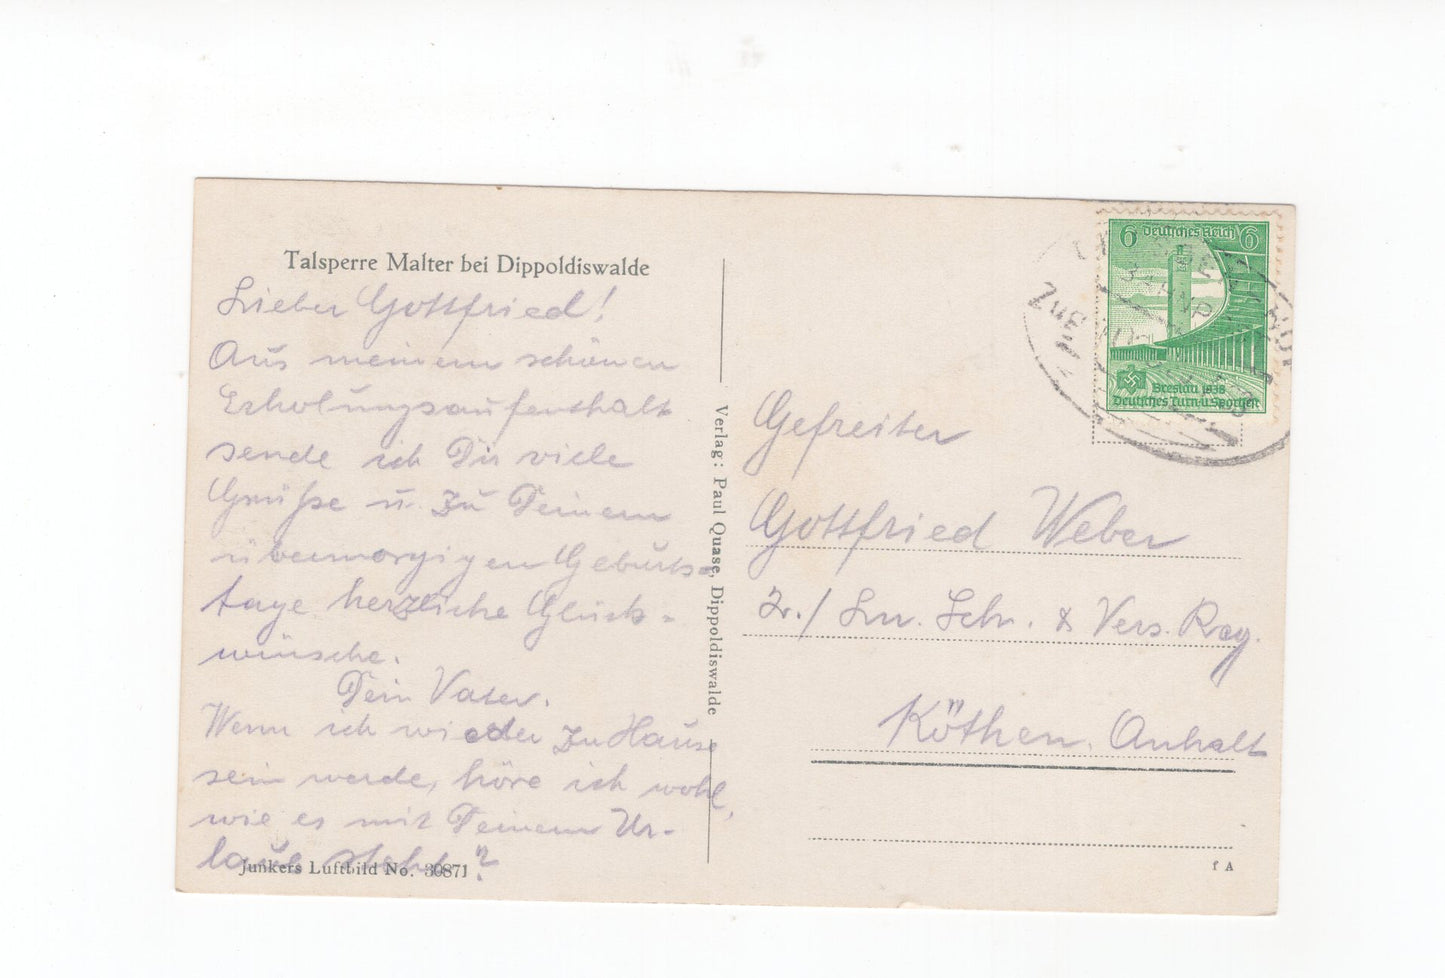 Talsperre Malter bei Dippoldiswalde
Lieber Gottfried!
Aus meinem schönen
Erholungsaufenthalt
sende ich Dir viele
Grüße u. zu Deinem
übermorgigen Geburts-
tage herzliche Glück-
wünsche.
Dein Vater.
Wenn ich wieder zu Hause
sein werde, höre ich wohl,
wie es mit Deinem Ur-
laub steht?
Junkers Luftbild No. 30871
Verlag: Paul Quase, Dippoldiswalde
6 Deutsches Reich 6
Breslau 1938
Deutsches Turn-u.Sportfest
BAHNPOST
ZUG
Gefreiter
Gottfried Weber
2./ Ln. Leh. & Vers. Reg.
Köthen. Anhalt
f A